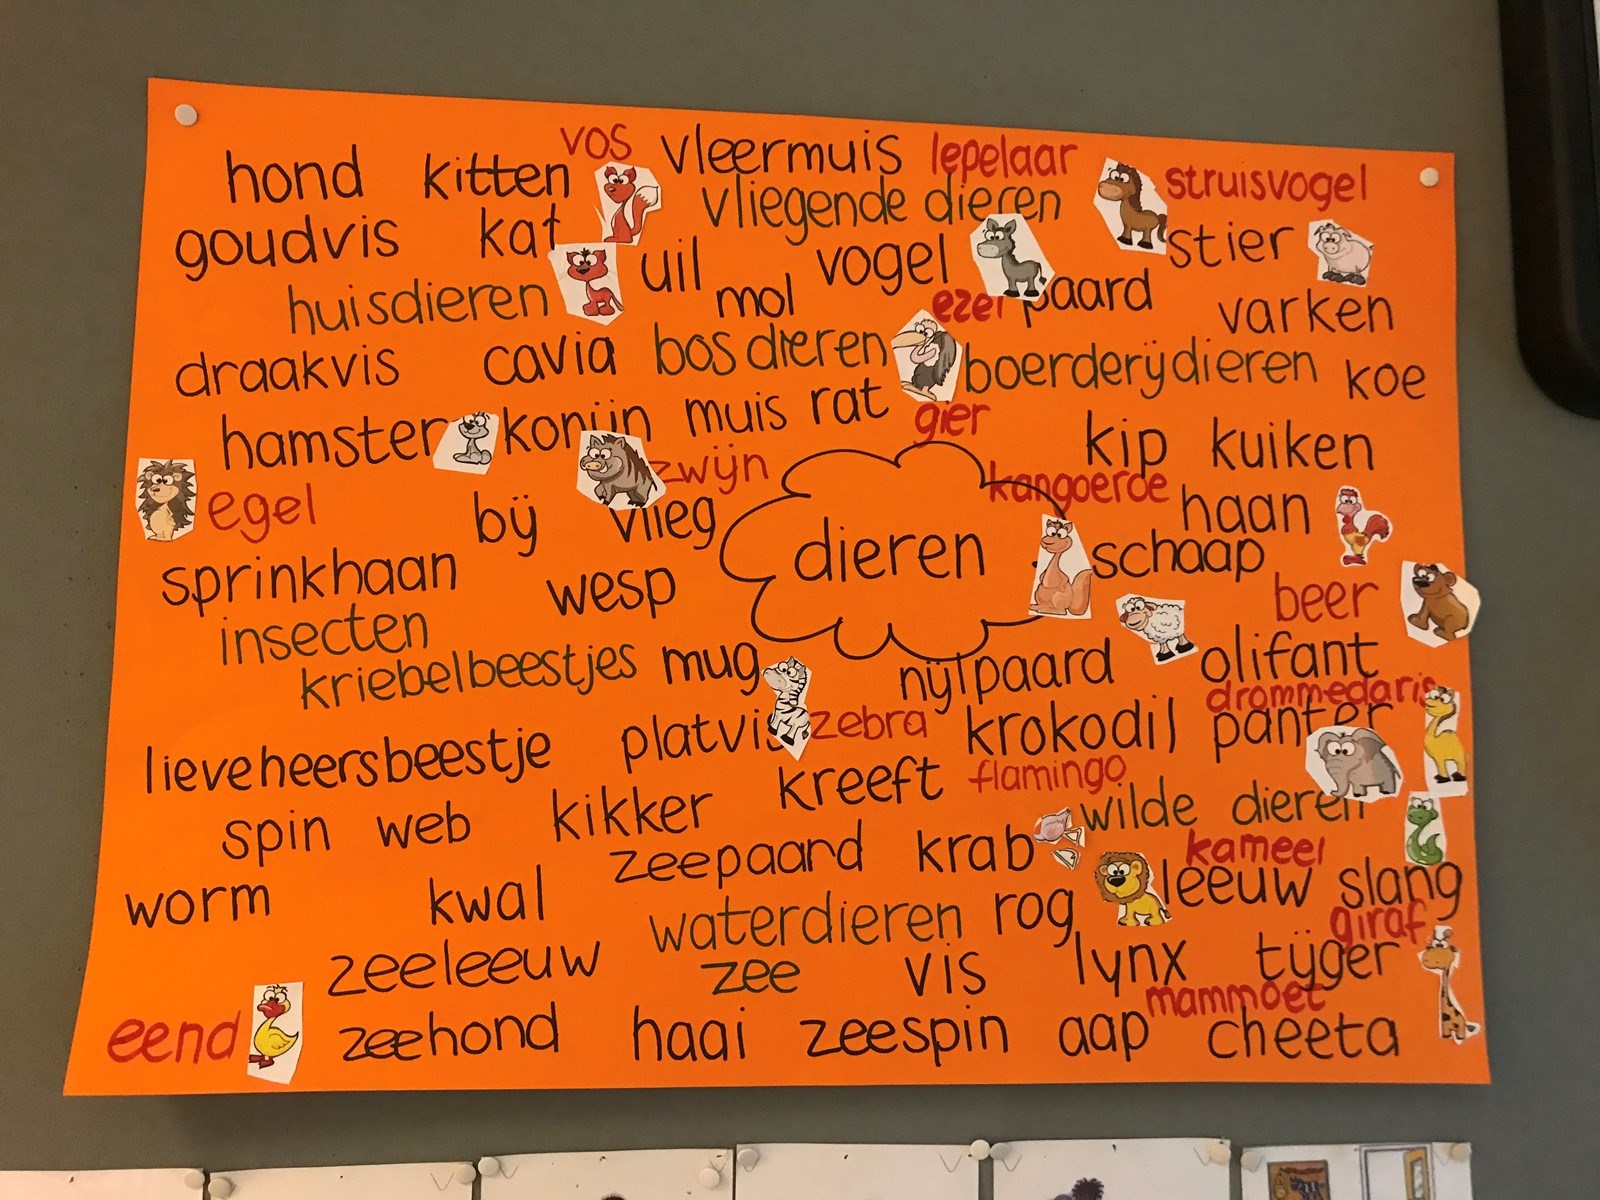 hond kitten vos vleermuis lepelaar struisvogel
goudvis kat vliegende dieren stier
huisdieren uil mol vogel ezel paard varken
draakvis cavia bosdieren boerderijdieren koe
hamster konijn muis rat gier kip kuiken
egel bij vlieg zwijn kangoeroe haan
sprinkhaan wesp dieren schaap
insecten beer
kriebelbeestjes mug nijlpaard olifant
lieveheersbeestje platvis zebra krokodil panter drommedaris
spin web kikker kreeft flamingo wilde dieren
zeepaard krab kameel
worm kwal waterdieren rog leeuw slang
zeeleeuw zee vis lynx tijger giraf
eend zeehond haai zeespin aap mammoet cheeta